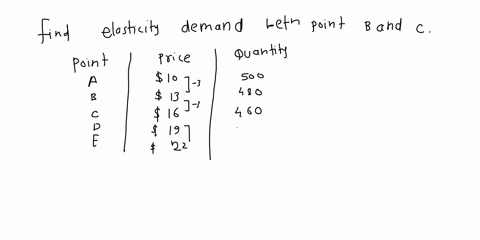 find elasticity demand betn point B and C.
Point Price Quantity
A $10 500
]-3
B $13 480
]-3
C $16 460
D $19
E $22